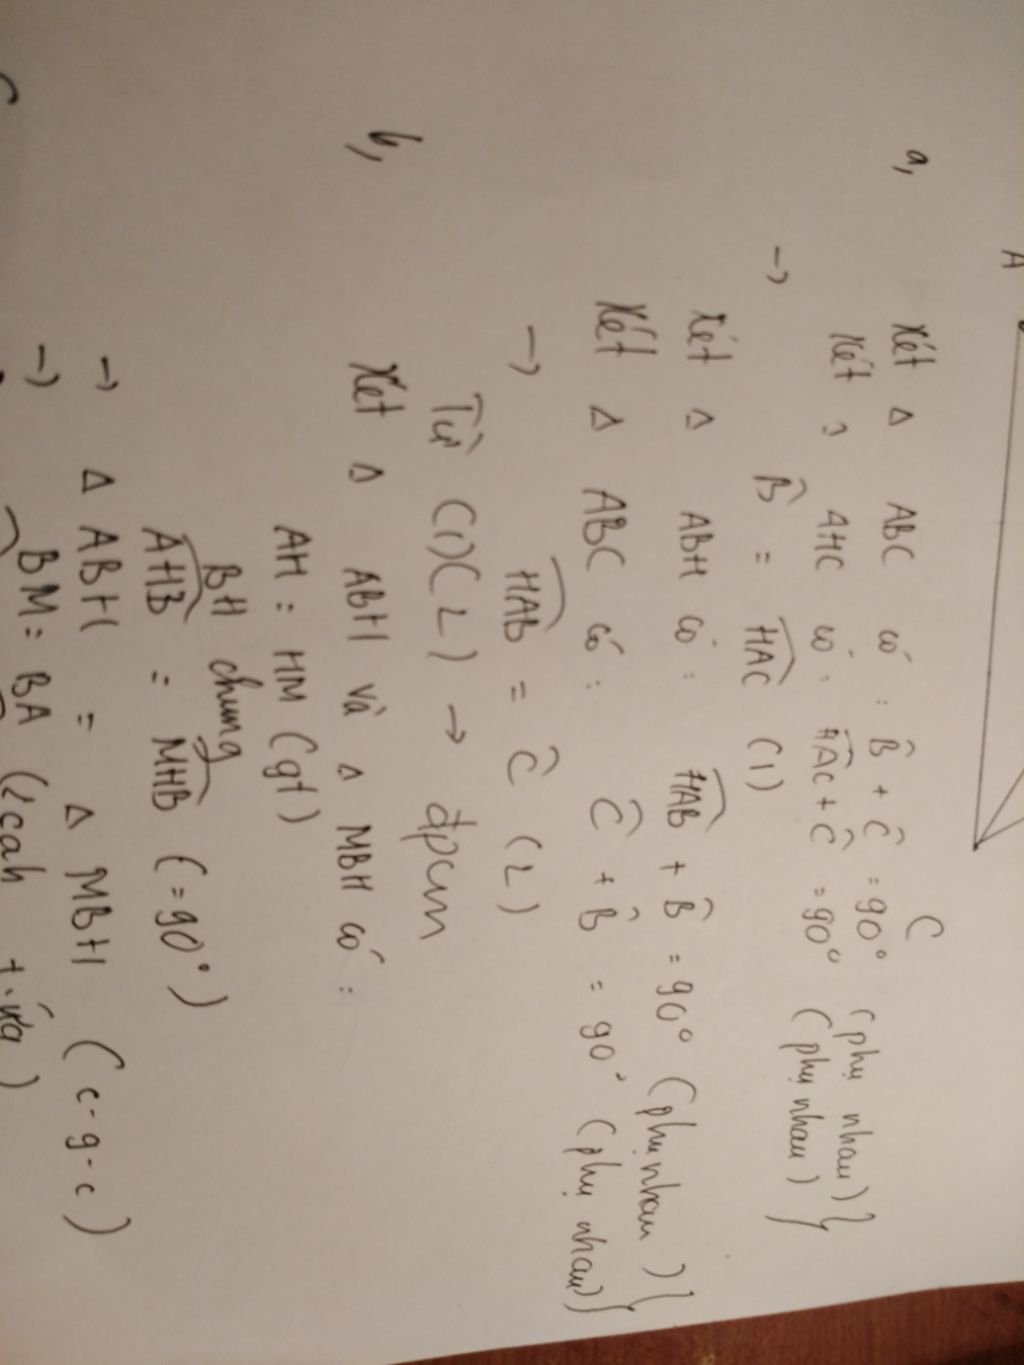 A
C
a, Xét Δ ABC có : B̂ + Ĉ = 90° (phụ nhau) }
Xét Δ AHC có : HAC + Ĉ = 90° (phụ nhau) }
→ B̂ = HAC (1)
Xét Δ ABH có : HAB + B̂ = 90° (phụ nhau) }
Xét Δ ABC có : Ĉ + B̂ = 90° (phụ nhau) }
→ HAB = Ĉ (2)
Từ (1)(2) → đpcm
b, Xét Δ ABH và Δ MBH có :
AH = HM (gt)
BH chung
AHB = MHB (= 90°)
→ Δ ABH = Δ MBH (c-g-c)
→ BM = BA (2 cah t.ứg)